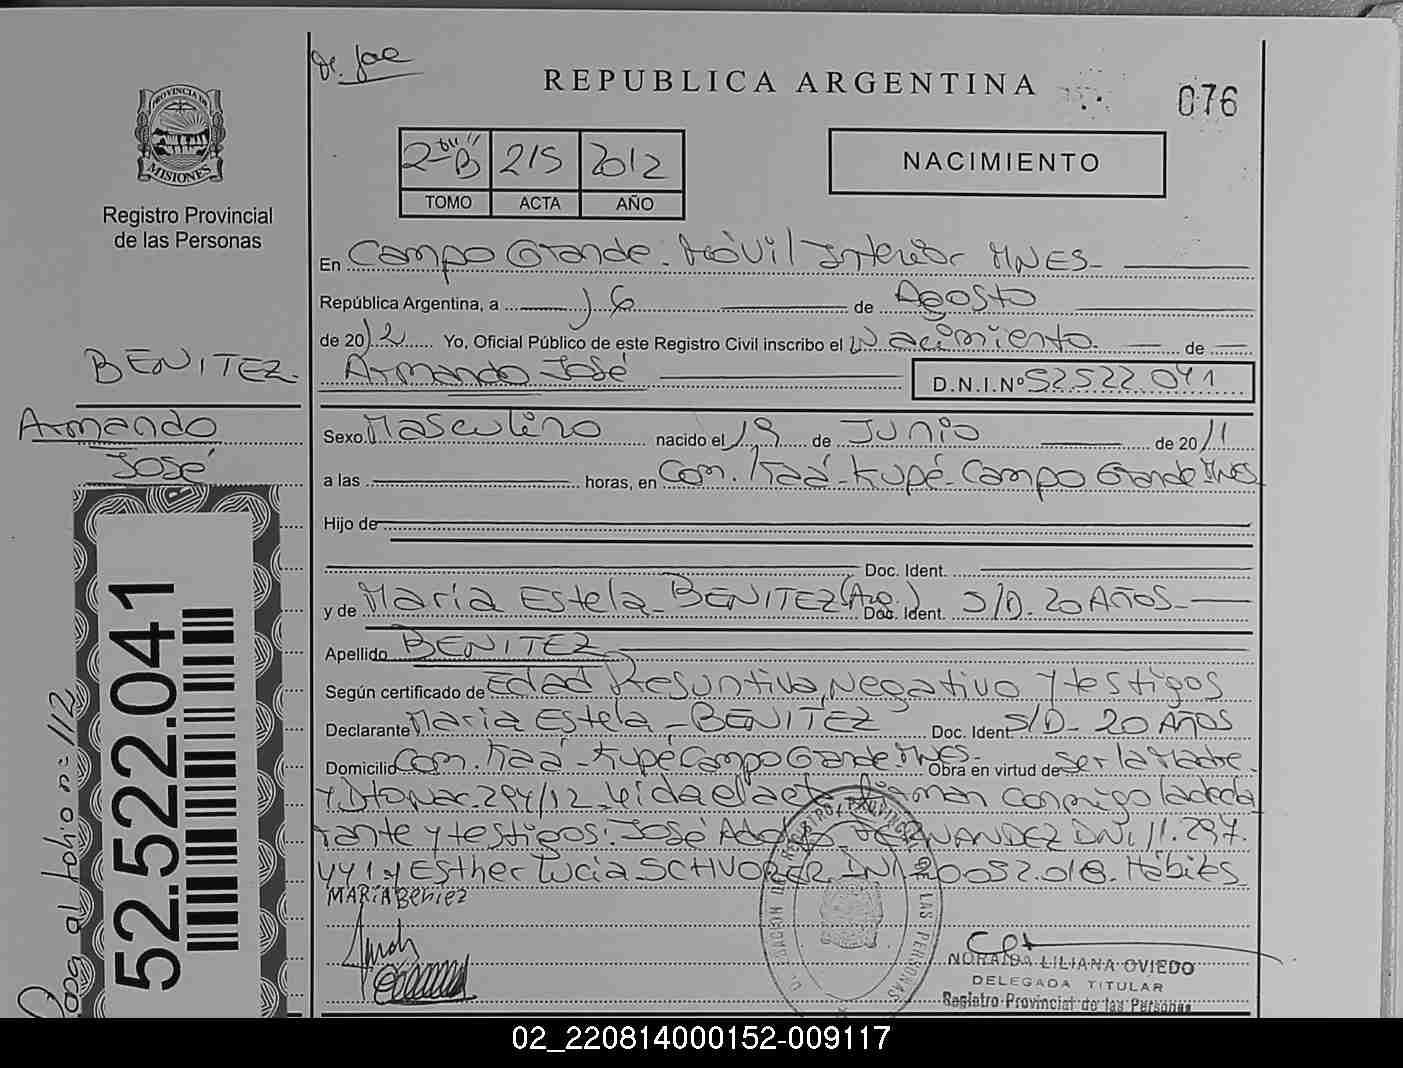 REPUBLICA ARGENTINA
076
PROVINCIA DE
MISIONES
Registro Provincial
de las Personas
2 B 215 2012
TOMO ACTA AÑO
NACIMIENTO
En Campo Grande. Móvil Interior MNES-
República Argentina, a 16 de Agosto
de 2012 Yo, Oficial Público de este Registro Civil inscribo el Nacimiento de
Armando José
D.N.I.Nº 52522.041
BENITEZ.
Armando
José
Sexo Masculino nacido el 19 de Junio de 2011
a las horas, en Com. Kaá-Kupé-Campo Grande MNES
Hijo de
Doc. Ident.
y de María Estela-BENITEZ (Arg.) Doc. Ident. S/D. 20 AÑOS-
Apellido BENITEZ
Según certificado de Edad Presuntiva, Negativo y testigos
Declarante María Estela-BENITEZ Doc. Ident. S/D- 20 AÑOS
Domicilio Com. Kaá-Kupé Campo Grande MNES- Obra en virtud de ser la Madre.
294/12 Leida el acta firman conmigo la decla
rante y testigos: José DNI 11.297.
441 y Esther Lucia Hábiles
MARIA Beniez
52.522.041
Pasa al folio nº 112
NORAIDA LILIANA OVIEDO
DELEGADA TITULAR
Registro Provincial de las Personas
02_220814000152-009117